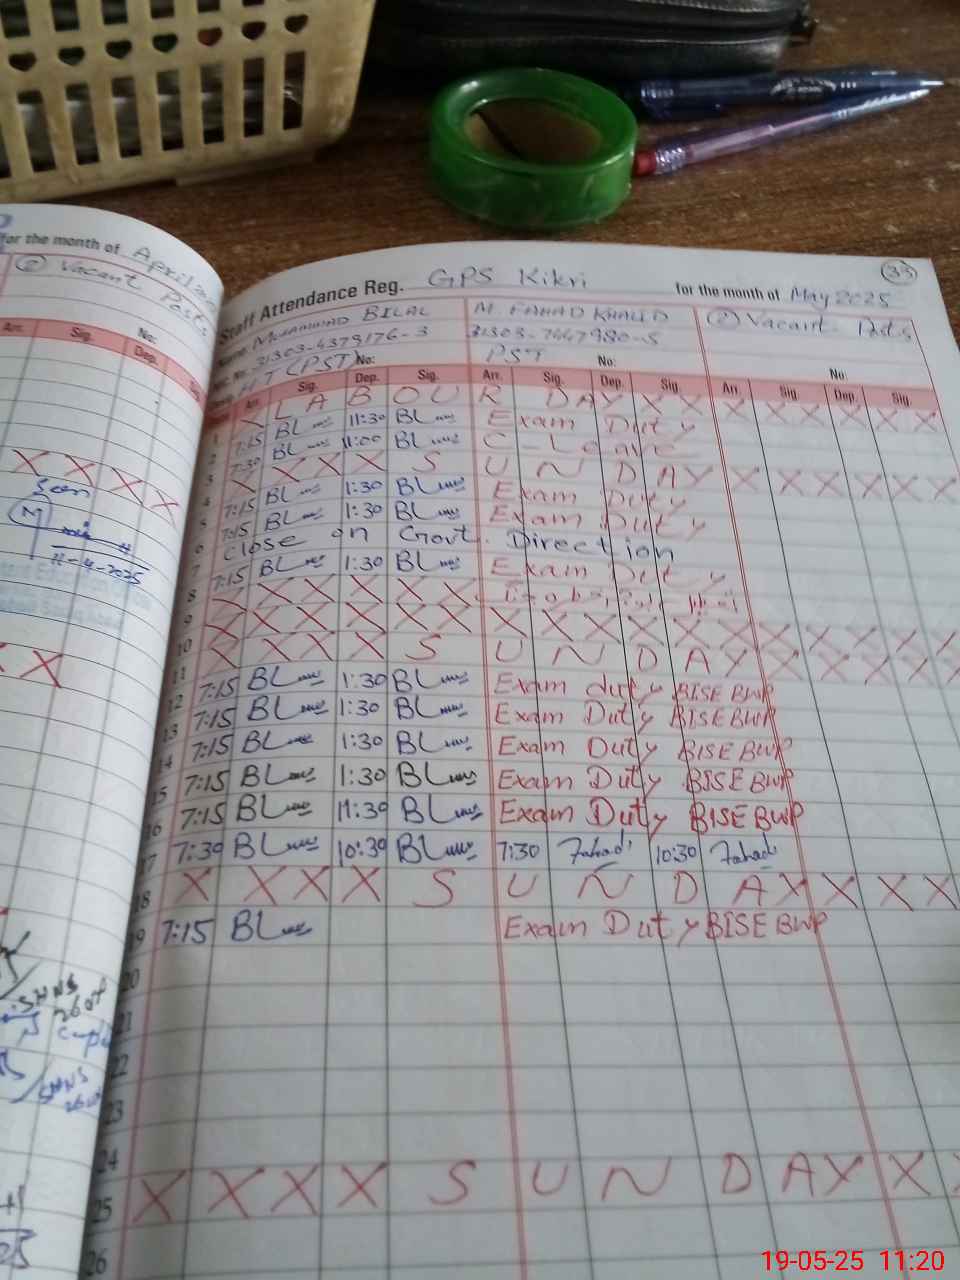 for the month of April
② Vacant Posts
Arr. Sig. No: Dep.
Seen
11-4-2025
33
Staff Attendance Reg. GPS Kikri for the month of May 2025
Name: Muhammad BILAL M. FAHAD KHALID ② Vacant Posts
31303-4379176-3 31303-7447980-5
HT (PST) No: PST No: No:
Arr. Sig. Dep. Sig. Arr. Sig. Dep. Sig. Arr. Sig. Dep. Sig.
1 X L A B O U R D A Y X X X X X X X
2 7:15 BL 11:30 BL Exam Duty
3 7:30 BL 11:00 BL C-Leave
4 X X X X S U N D A Y X X X X X X
5 7:15 BL 1:30 BL Exam Duty
6 7:15 BL 1:30 BL Exam Duty
7 Close on Govt. Direction
8 7:15 BL 1:30 BL Exam Duty
9 X X X X X X
10 X X X X X X X X X X X X X X X
11 X X X X S U N D A Y X X X X X
12 7:15 BL 1:30 BL Exam duty BISE BWP
13 7:15 BL 1:30 BL Exam Duty BISE BWP
14 7:15 BL 1:30 BL Exam Duty BISE BWP
15 7:15 BL 1:30 BL Exam Duty BISE BWP
16 7:15 BL 11:30 BL Exam Duty BISE BWP
17 7:30 BL 10:30 BL 7:30 Fahad 10:30 Fahad
18 X X X X S U N D A Y X X X
19 7:15 BL Exam Duty BISE BWP
20
21
22
23
24
25 X X X X S U N D A Y X X
26
19-05-25 11:20